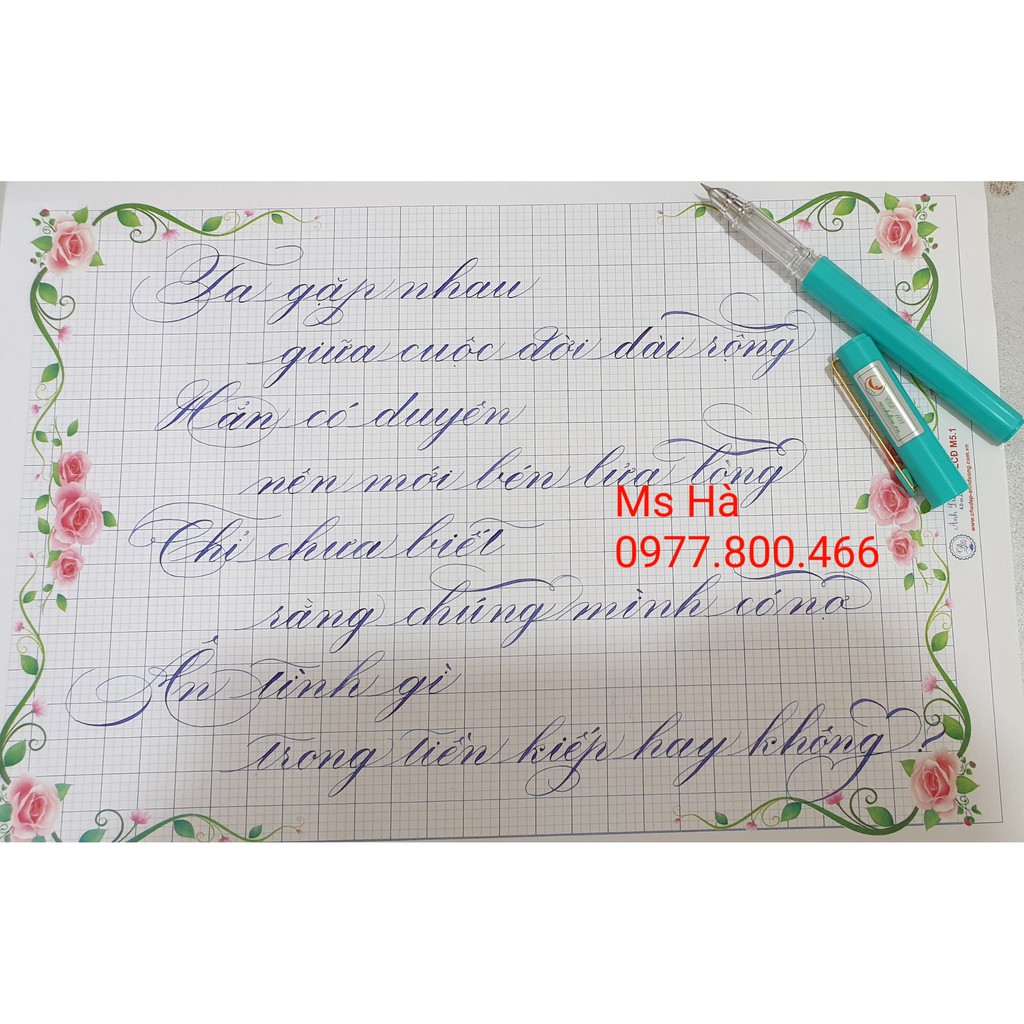 Ta gặp nhau
giữa cuộc đời dài rộng
Hẳn có duyên
nên mới bén lửa lòng
Chỉ chưa biết
rằng chúng mình có nợ
Ân tình gì
trong tiền kiếp hay không?
Ms Hà
0977.800.466